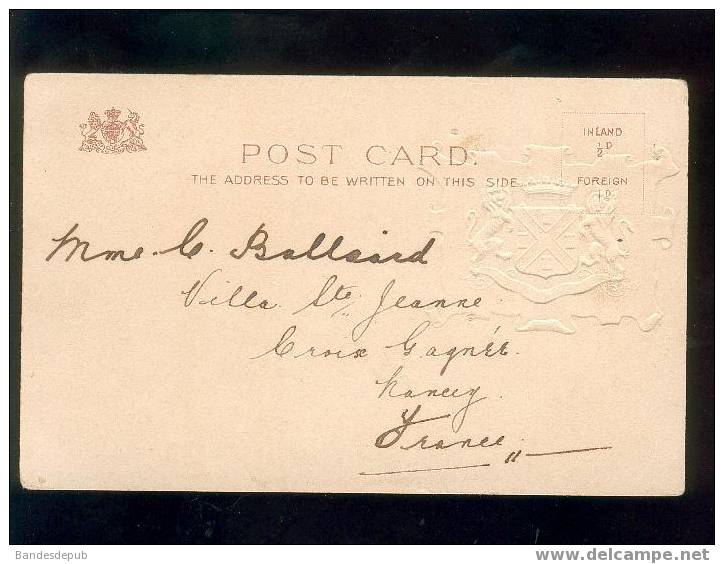 INLAND
½D
FOREIGN
1D
POST CARD.
THE ADDRESS TO BE WRITTEN ON THIS SIDE
Mme C. Ballaard
Villa Ste Jeanne
Croix Gagnée.
Nancy.
France.
Bandesdepub
www.delcampe.net